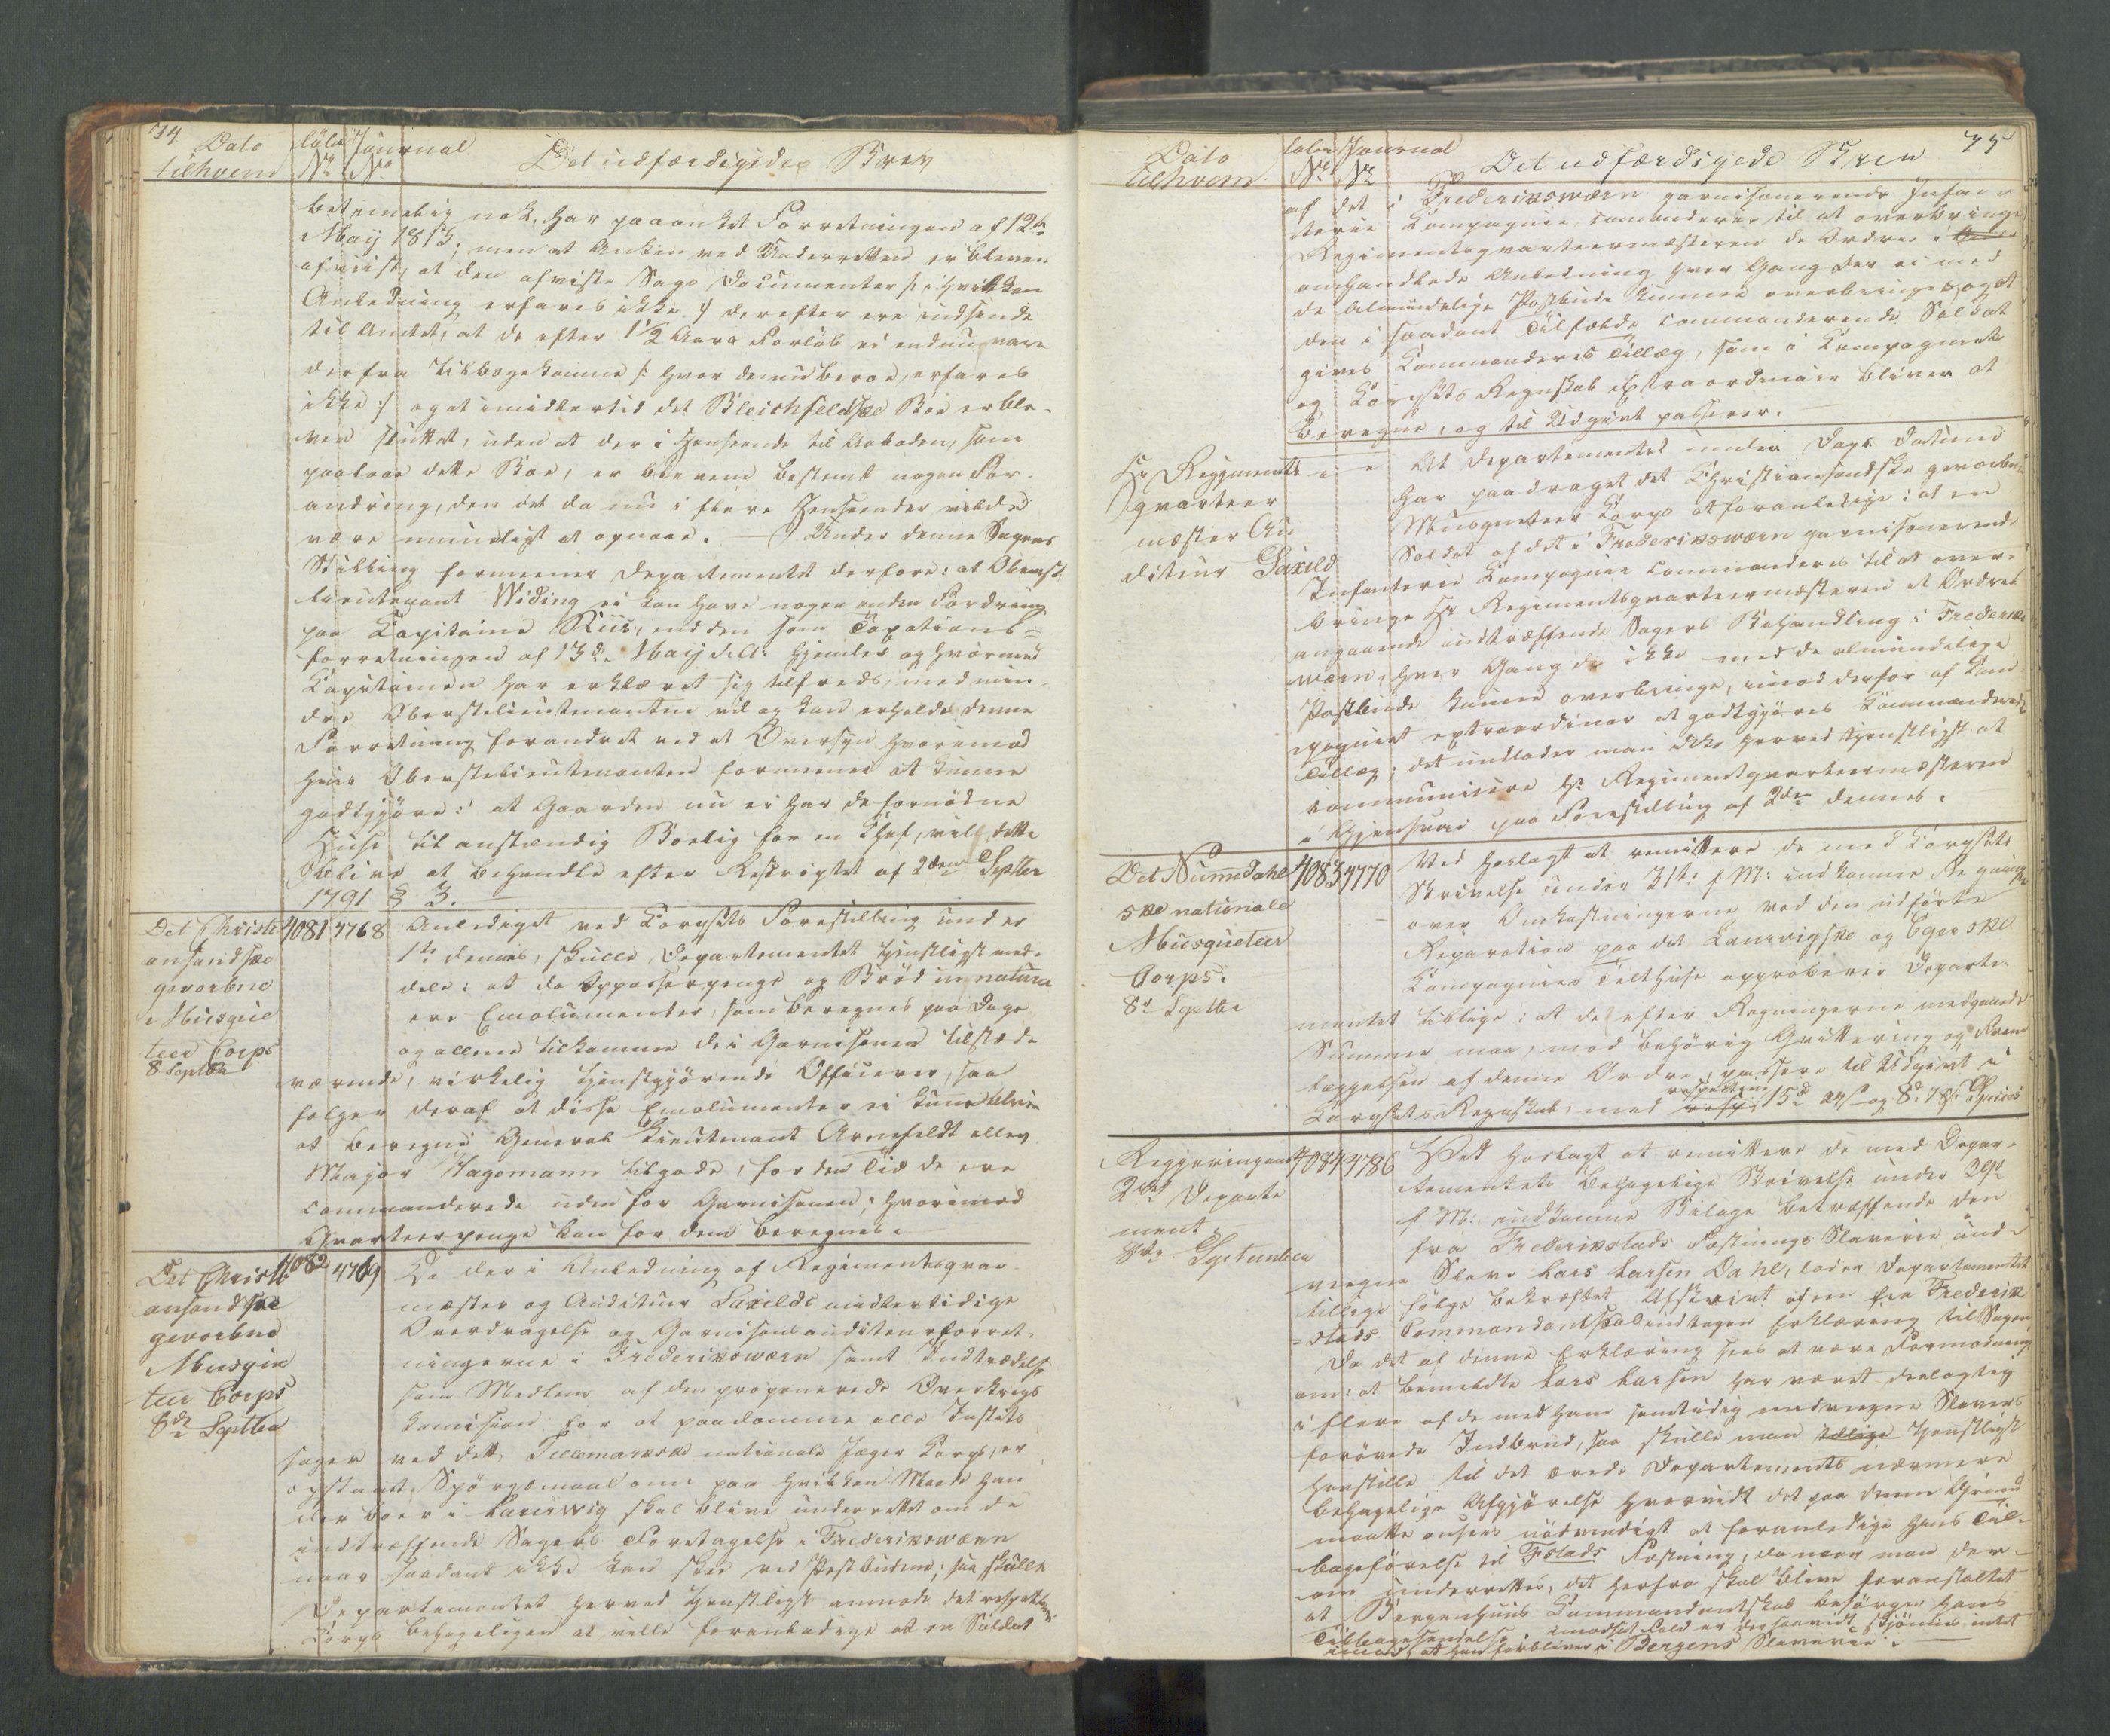 74
Dato
tilhvem
Løbe
No
Journal
No
Det udfærdigede Brev
betimelig nok, har paaanket Forretningen af 12te
May 1813; men at Anken ved Underretten er bleven
afviist, at den afviste Sags Documenter /: i hvilken
Anledning erfares ikke :/ derefter ere indsendte
til Amtet, at de efter 1 1/2 Aars Forløb ei endnu vare
derfra tilbagekomne /: hvor de nu beroe, erfares
ikke :/ og at imidlertid det Bleichfeldske Boe er ble-
ven sluttet, uden at der i Henseende til Aaboden, som
paalaae dette Boe, er bleven bestemt nogen For-
andring, den det da nu i flere Henseender vilde
være umueligt at opnaae. — Under denne Sagens
Stilling formener Departementet derfore: at Oberst-
lieutenant Widing ei kan have nogen anden Fordring
paa Kapitaine Riis, end den som Taxations-
forretningen af 13de May d. A. hjemler og hvormed
Kapitainen har erklæret sig tilfreds, med min-
dre Oberstlieutenanten vil og kan erholde denne
Forretning forandret ved et Oversyn hvorimod
hvis Oberstelieutenanten formener at kunne
godtgjøre: at Gaarden nu ei har de fornødne
Huse til anstændig Boelig for en Chef, vil dette
blive at behandle efter Reskriptet af 2den Septbr
1791 § 3.
Det Christi
ansandske
gevorbne
Musque
teer Corps
8 Septbr
4081
4768
Anlediget ved Corpsets Forestilling under
1te dennes, skulle Departementet tjenstligst med-
dele: at da Oppasserpenge og Brød in natura
ere Emolumenter, som beregnes paa Dage
og allene tilkomme de i Garnisonen tilstæde
værende, virkelig tjenstgjørende Officerer, saa
følger deraf at disse Emolumenter ei kunne blive
at beregne General Lieutenant Arnefeldt eller
Major Hagemann tilgode, for den Tid de ere
commanderede uden for Garnisonen; hvorimod
Qvarteerpenge kan for dem beregnes.
Det Christi
ansandske
gevorbne
Musque
teer Corps
8de Septbr
4082
4769
Da der i Anledning af Regimentsqvar-
mæster og Auditeur Saxilds midlertidige
Overdragelse af Garnisonsauditeurforret-
ningerne i Frederiksværn samt Indtrædelse
som Medlem af den proponerede Overkrigs
Comission for at paadømme alle Justits
sager ved det Tellemarkske nationale Jæger Corps, er
opstaaet Spørgsmaal om: paa hvilken Maade han
der boer i Laurwig skal blive underrettet om de
indtræffende Sagers Foretagelse i Frederiksværn
naar saadant ikke kan skee ved Postbudene; saa skulle
Departementet herved tjenstligst anmode det respektive
Corps behageligen at ville foranledige at en Soldat
75
Dato
tilhvem
Løbe
No
Journal
No
Det udfærdigede Brev
af det i Frederiksværn garnisonerende Infan
terie Kompagnie, comanderes til at overbringe
Regimentsqvarteermæsteren de Ordrer i
omhandlede Anledning hver Gang der ei med
de almindelige Postbude kunne overbringes, og at
den i saadant Tilfælde commanderende Soldat
gives Commanderes Tillæg, som i Kompagniets
og Corpsets Regnskab extraordinair bliver at
beregne, og til Udgivt passerer.
Hr Regiments
qvarteer
mæster Au
diteur Saxild
At Departementet under Dags Datum
har paadraget det Christiansandske gevorbne
Musqueteer Corps at foranledige: at en
Soldat af det i Frederiksværn garnisonerende
Infanterie Kompagnie commanderes til at over-
bringe Hr Regimentsqvarteermæsteren et Ordres
angaaende indtræffende Sagers Behandling i Frederiks
værn, hver Gang de ikke med de almindelige
Postbude kunne overbringe, imod derfor af Kom
pagniet extraordinær at godtgjøres Commanderende
Tillæg; det undlader man ikke herved tjenstligst at
communicere Hr Regimentsqvarteermæsteren
i Gjensvar paa Forestilling af 2den dennes.
Det Numedahl
ske nationale
Musqueteer
Corps.
8de Septbr
4083
4770
Ved hoslagt at remittere de med Corpsets
Skrivelse under 31te f. M: indkomne Regninger
over Omkostningerne ved den udførte
Reparation paa det Laurvigske og Egerske
Kompagnies Telthuse approberer Departe-
mentet tillige: at de efter Regningerne medgaaede
Summer maa, mod behørig Qvittering og Frem
læggelsen af denne Ordre, passere til Udgivt i
Corpsets Regnskab, med respective 15d 24s og 8d 78s Species
Regjeringens
2det Departe
ment
8de September
4084
4786
Ved hoslagt at remittere de med Depar-
tementets behagelige Skrivelse under 29de
f. M: indkomne Bilage betræffende den
fra Frederikstads Fæstnings Slaverie und-
vegne Slave Lars Larsen Dahl, lader Departementet
tillige følge bekræftet Afskrivt af en fra Frederik
=stads Commandantskab indtagen Erklæring til Sagen
Da det af denne Erklæring sees at være Formodning
om: at bemeldte Lars Larsen har været deelagtig
i flere af de med ham samtidig undvegne Slavers
forøvede Indbrud, saa skulle man tillige tjenstligst
henstille til det ærede Departements nærmere
behagelige Afgjørelse hvorvidt det paa denne Grund
maatte ansees nødvendigt at foranledige hans Til-
bageførelse til Fstads Fæstning, da naar man der-
om underrettes, det herfra skal blive foranstaltet
at Bergenhuus Commandantskab besørger hans
Tilbagesendelse. imodsat Fald er der saavidt skjønnes intet
imod, at han forbliver i Bergens Slaverie.